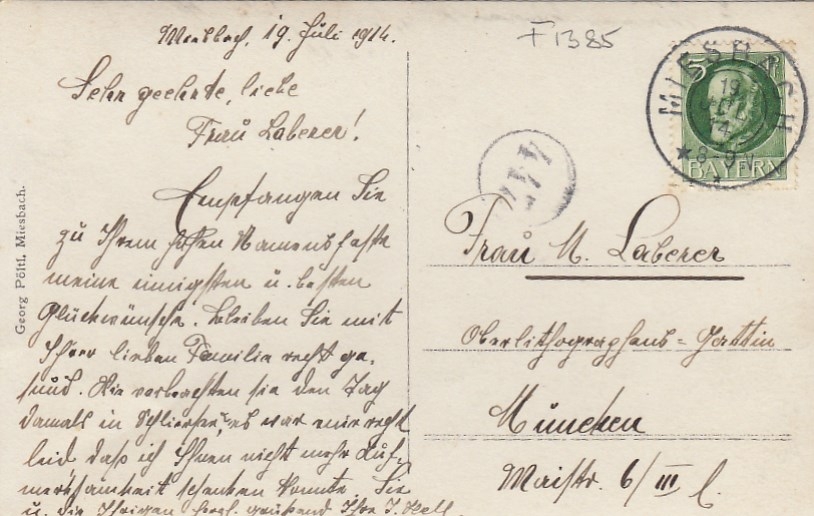 Miesbach, 19. Juli 1914.
F 1385
Sehr geehrte, liebe
Frau Laberer!
Empfangen Sie
zu Ihrem hohen Namensfeste
meine innigsten u. besten
Glückwünsche. Bleiben Sie mit
Ihrer lieben Familie recht ge-
sund. Wie verbrachten sie den Tag
damals in Schliersee, es war mir recht
leid daß ich Ihnen nicht mehr Auf-
merksamkeit schenken konnte. Sie
u. die Ihrigen herzl. grüßend Ihre J. Hell
Georg Pöltl, Miesbach.
MIESBACH
19 JUL 14
★ 8-9 V.
5
BAYERN
Frau M. Laberer
Oberlithographens-Gattin
München
Maistr. 6/III l.